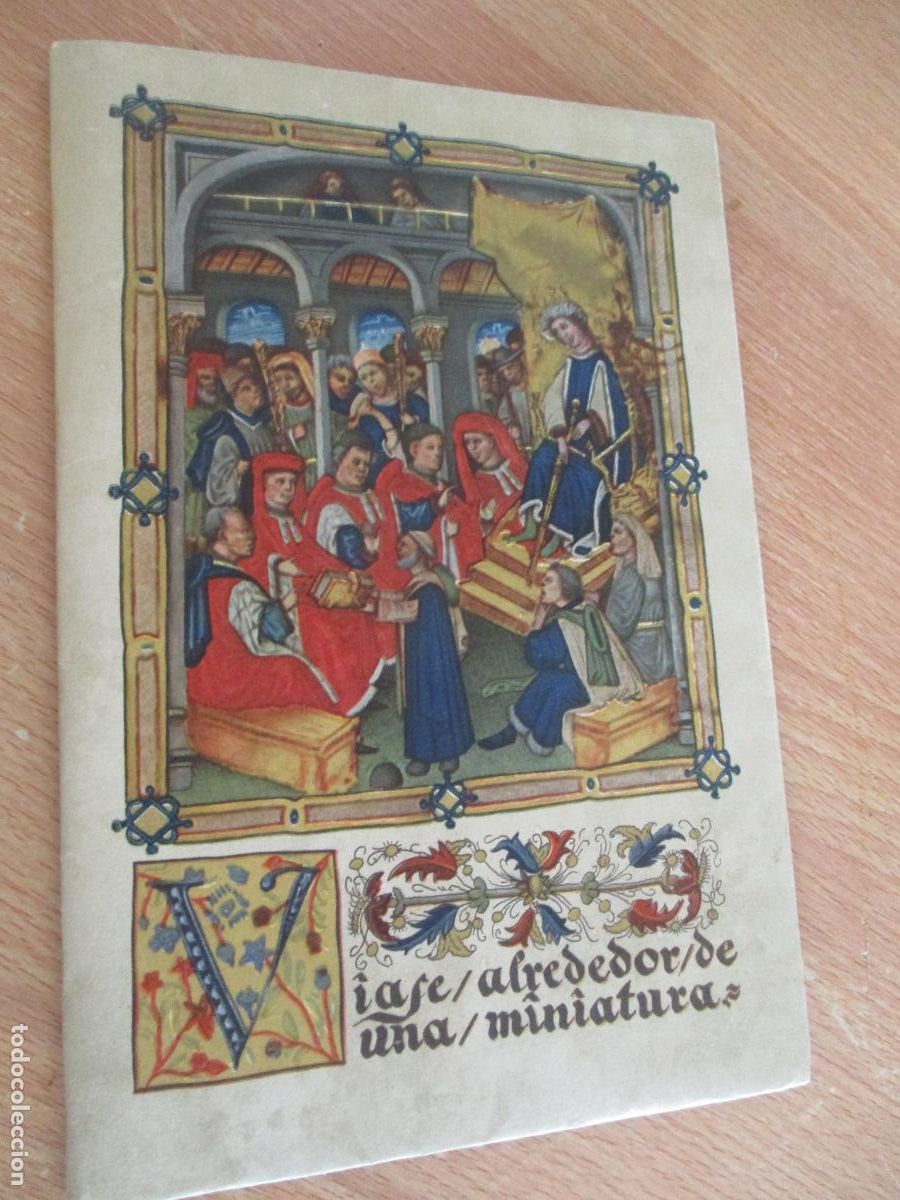 Viaje/alrededor/de
una/miniatura
todocoleccion